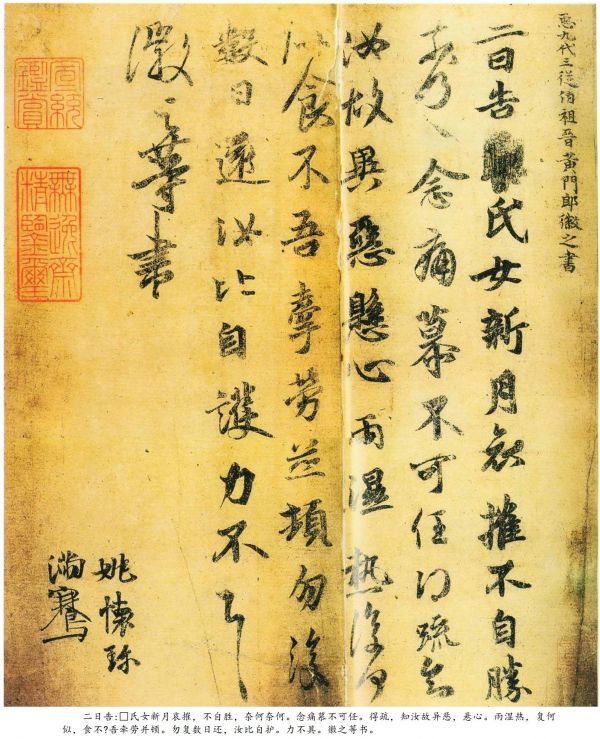 九代三從伯祖晉黃門郎徽之書
二日告氏女新月哀摧不自勝
奈何奈何念痛慕不可任得疏知
汝故異惡懸心雨濕熱復何
似食不吾牽勞並頓勿復
數日還汝比自護力不具
徽之等書
姚懷珍
滿騫
宣統鑑賞
無逸齋精鑒璽
二日告:□氏女新月哀摧，不自胜，奈何奈何。念痛慕不可任。得疏，知汝故异恶，悬心。雨湿热，复何
似，食不?吾牵劳并顿。勿复数日还，汝比自护。力不具。徽之等书。